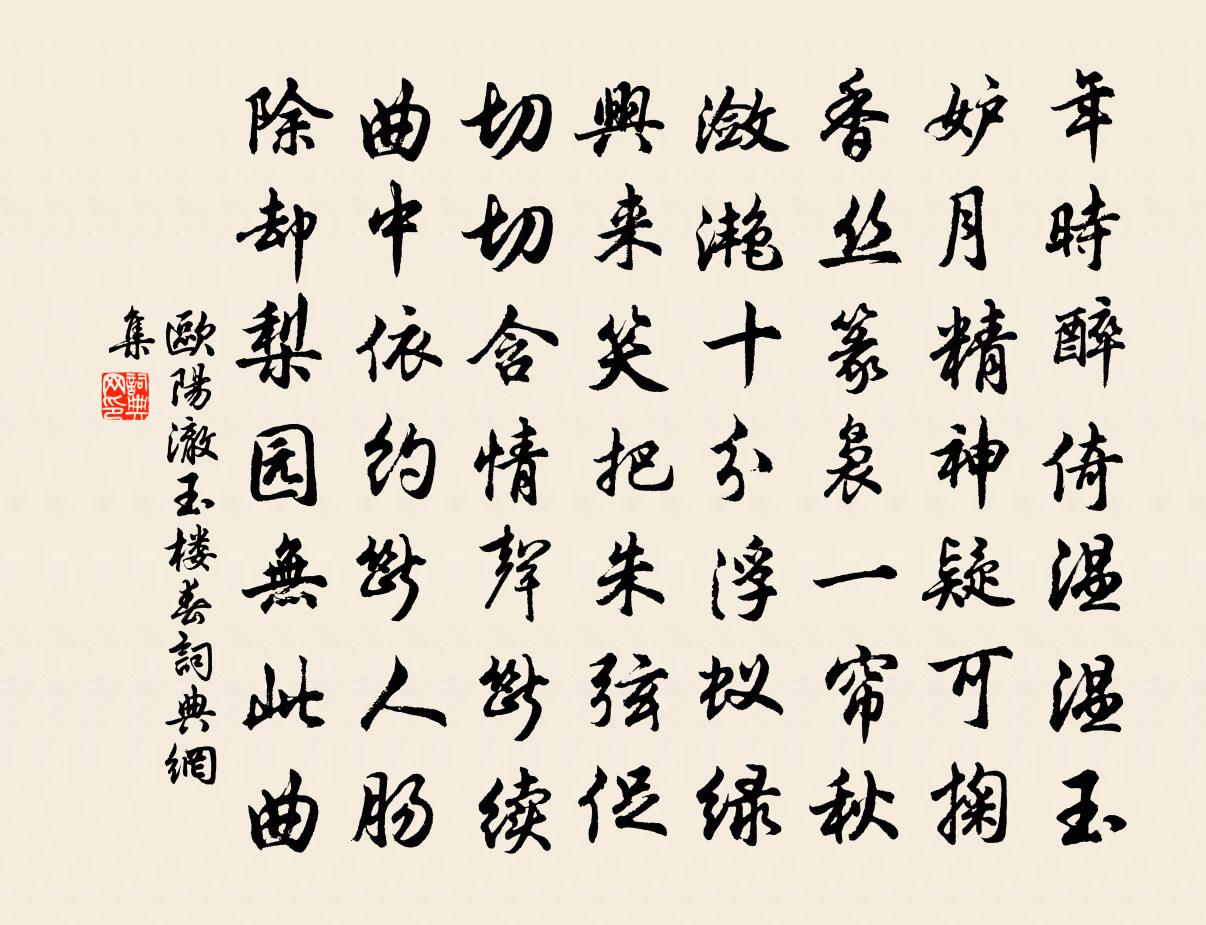 年時醉倚温温玉
妒月精神疑可掬
香丝篆裊一帘秋
潋滟十分浮蚁绿
興来笑把朱弦促
切切含情聲斷续
曲中依约斷人肠
除却梨园無此曲
歐陽澈玉楼春詞典網
集
詞典網印